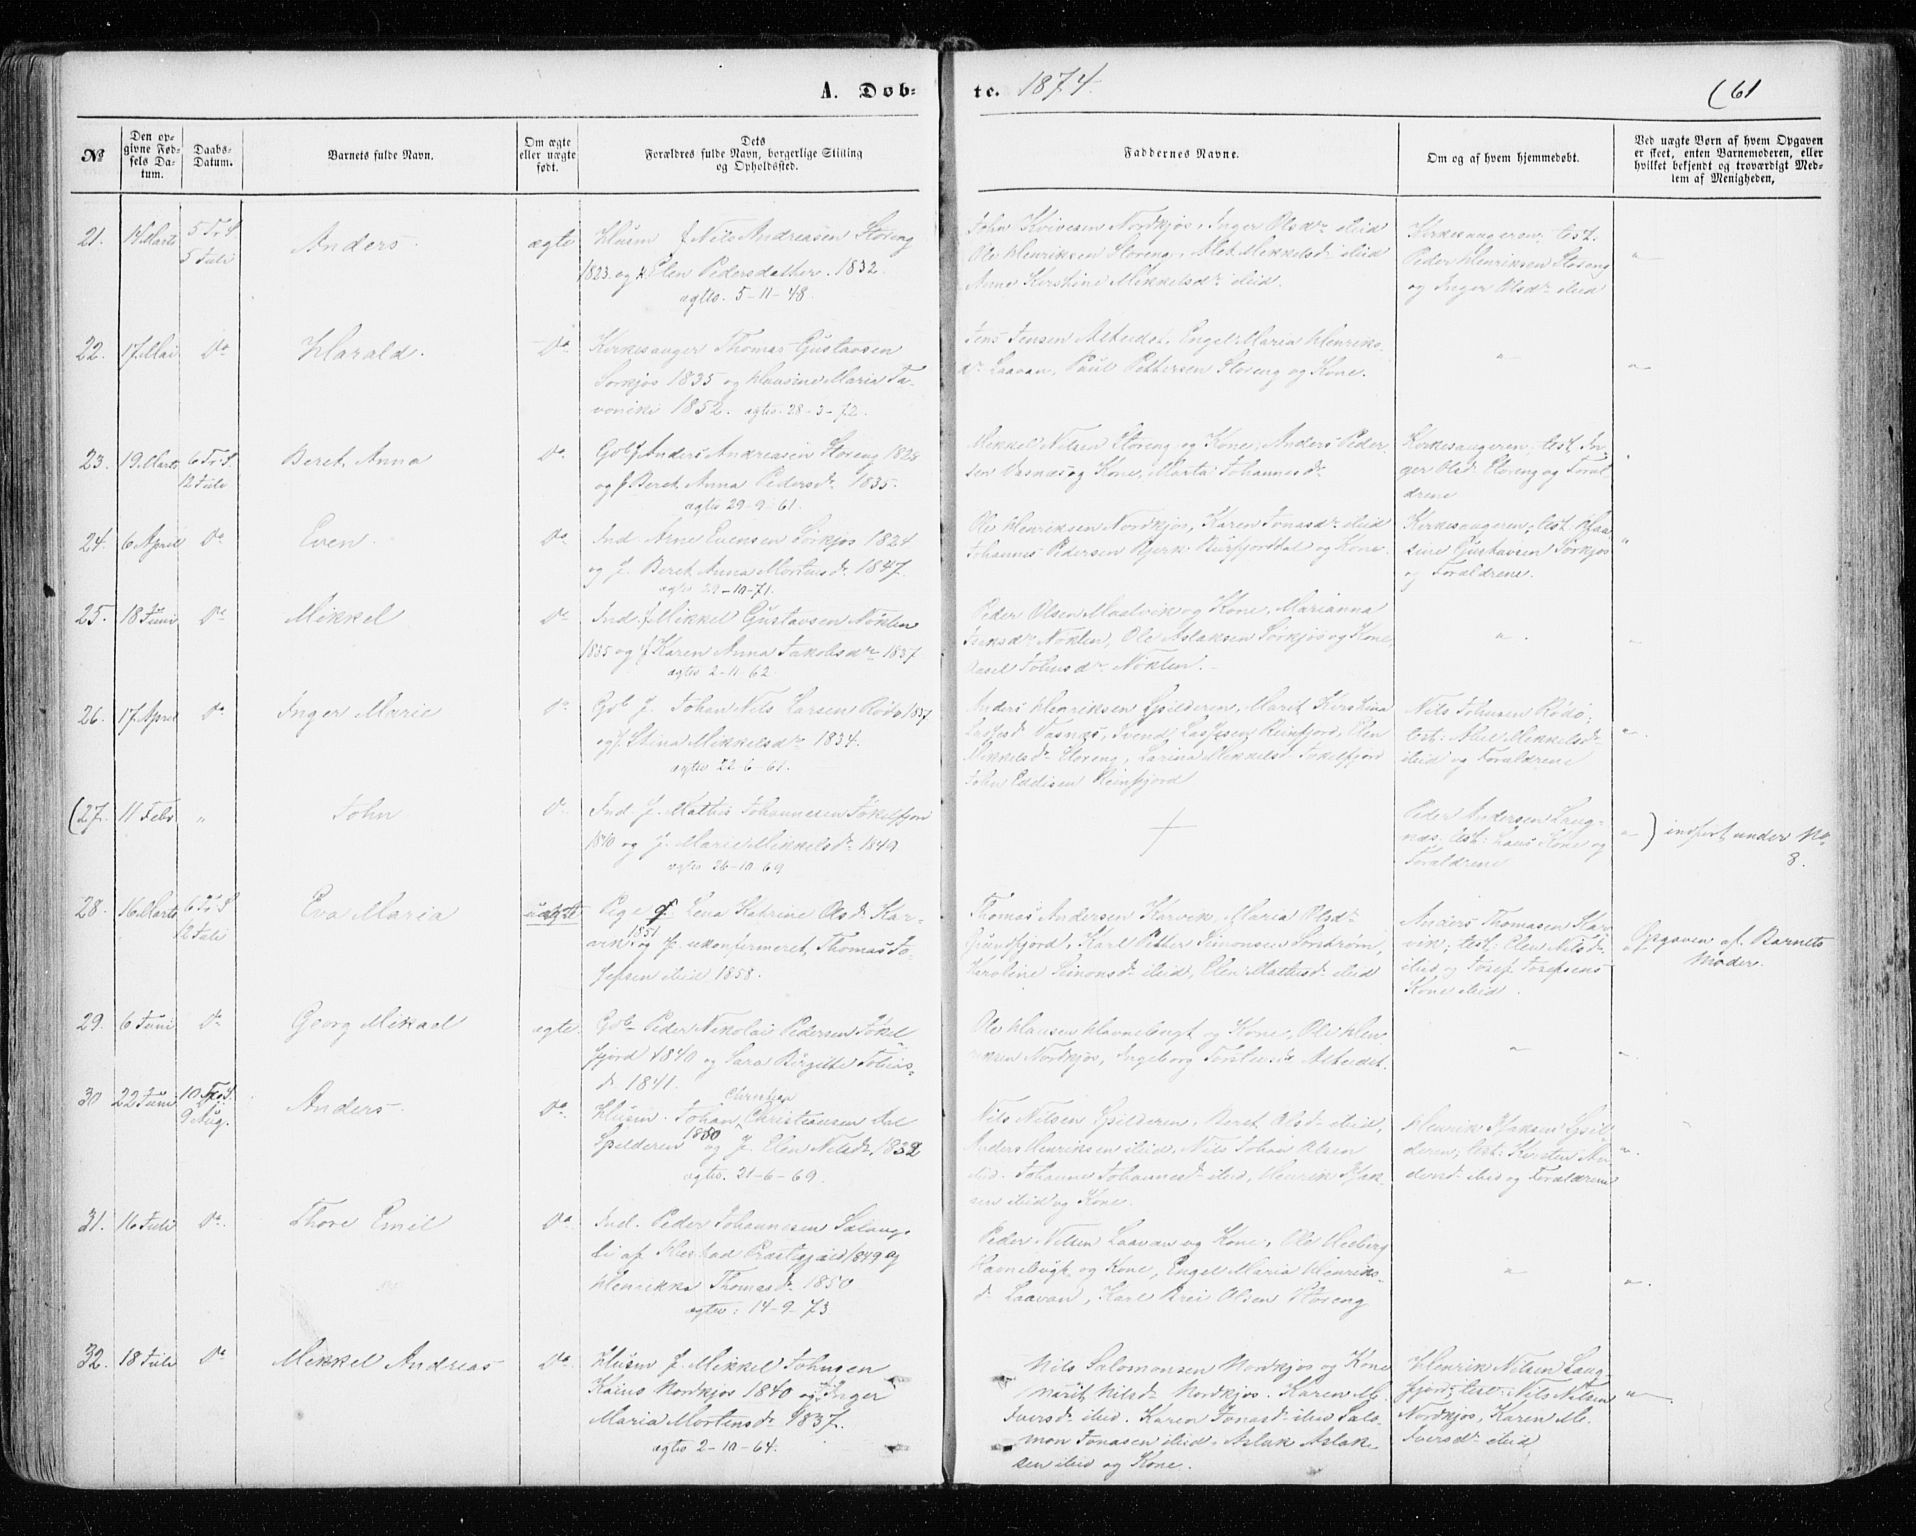 A. Døb- te. 1874. (61
No
Den opgivne Fødsels Datum.
Daabs-Datum.
Barnets fulde Navn.
Om ægte eller uægte født.
Dets Forældres fulde Navn, borgerlige Stilling og Opholdssted.
Faddernes Navne.
Om og af hvem hjemmedøbt.
Ved uægte Børn af hvem Opgaven er skeet, enten Barnemoderen, eller hvilket bekjendt og troværdigt Medlem af Menigheden,
21. 14 Marts 5 Tr. S. 5 Juli Anders. ægte Husm f. Nils Andreasen Storeng
1823. og f. Elen Pedersdatter. 1832.
agtev. 5-11-48.
John Nordkjos, Inger Olsdr ibid
Ole Henriksen Storeng, Mikkelsd. ibid
Anne Kirstine Mikkelsdr ibid.
Kirkesangeren; test.
Peder Henriksen Storeng
og Inger Olsdr ibid
22. 17 Mai Do Harald. Do Kirkesanger Thomas Gustavsen
Sørkjos 1835 og Hansine Maria
1852. agtev. 28-3-72.
Jens Jensen Alteidet, Engel Maria Henriks-
dr Laavan, Paul Pettersen Storeng og Kone.
23. 19 Marts 6 Tr. S. 12 Juli Beret Anna Do Gbf Anders Andreasen Storeng 1828
og f Beret Anna Pedersd. 1835.
agtev 29-9-61.
Mikkel Nilsen Storeng og Kone, Anders Peder-
sen og Kone, Marta Johannesdr
Kirkesangeren; test. In-
ger Olsd. Storeng og Foræl-
drene
24. 6 April Do Even. Do Ind. Arne Evensen Sørkjos 1824
og f. Beret Anna Mortensd. 1847.
agtev 29-10-71.
Ole Henriksen Nordkjos, Karen Jonasdr ibid
Johannes Pedersen Burfjorddal og Kone.
Kirkesangeren; test. Han-
sine Gustavsen Sørkjos
og Forældrene.
25. 18 Juni Do Mikkel Do Ind. f Mikkel Gustavsen Nøklen
1835 og f Karen Anna Jakobsdr 1837
agtev 2-11-62.
Peder Olsen og Kone, Marianna
Nøklen, Ole Aslaksen Sørkjos og Kone,
Johnsdr Nøklen.
26. 17 April Do Inger Marie Do Gbf. f. Johan Nils Larsen Rødø 1837
og f. Stina Mikkelsdr 1834.
agtev 22-6-61.
Anders Henriksen Spilderen, Maret Kirstina
Svend Reinfjord, Elen
Mikkelsd. Storeng, Larina Mikkelsd Jøkelfjord
John Reinfjord
Nils Johnsen Rødø;
test: Mikkelsd.
ibid og Forældrene
(27. 11 Febr. " John Do Ind f. Mathis Johannesen Jøkelfjord
1840 og f. Marie Mikkelsdr 1849
agtev 26-10-69
Peder Andersen Laug-
næs; test: Hans Kone og
Forældrene
) indført under No
8.
28. 16 Marts 6 Tr. S 12 Juli Eva Maria uægte Pige f Lena Katrine Olsd. Kar-
vik 1851 og f. ukonfirmeret, Thomas Jo-
sefsen ibid 1858.
Thomas Andersen Karvik, Maria Olsdr
Karl Petter Simonsen Sørstrøm,
Karoline Simonsd. ibid, Elen Mathisd ibid
Anders Thomasen Kar-
vik; test: Elen Nilsd.
ibid og Josef Josefsens
Kone ibid.
Opgaven af Barnets
Moder.
29. 6 Juni Do Georg Mikael ægte. Gbf Peder Nikolai Pedersen Jøkel
fjord 1840 og Sara Birgitte Tobias-
d. 1841.
Ole Hansen Havnebugt og Kone, Ole Hen-
riksen Nordkjos, Ingeborg Alteidet.
30 22 Juni 10 Tr. S. 9 Aug. Anders. Do Husm. Johan Christian Christiansen Dal
Spilderen 1850 og f. Elen Nilsd. 1832
agtev. 21-6-69.
Nils Nilsen Spilderen, Beret Olsd ibid,
Anders Henriksen ibid, Nils Johan Olsen
ibid. Johanne Johannesd ibid, Henrik Isak-
sen ibid og Kone.
Henrik Isaksen Spil-
deren; test: Kirsten An-
dersd. ibid og Forældrene
31. 16 Juli Do Thore Emil Do Ind. Peder Johannesen Salang-
li af Præstegjæld 1849 og
Henrikka Thomasd. 1850
agtev: 14-9-73
Peder Nilsen Laavan og Kone, Ole
Havnebugt og Kone, Engel Maria Henriks-
d. Laavan, Karl Olsen Storeng
32. 18 Juli Do Mikkel Andreas Do Husm f. Mikkel Johnsen
Nordkjos 1840 og f. Inger
Maria Mortensd. 1837.
agtev 2-10-64.
Nils Salomonsen Nordkjos og Kone
Marit Nilsd Nordkjos. Karen M.
Iversd. ibid. Karen Jonasd. ibid. Salo-
mon Jonasen ibid. Aslak Aslak-
sen ibid og Kone.
Henrik Nilsen Lang-
fjord; test: Nils Nilsen
Nordkjos, Karen M.
Iversdr ibid